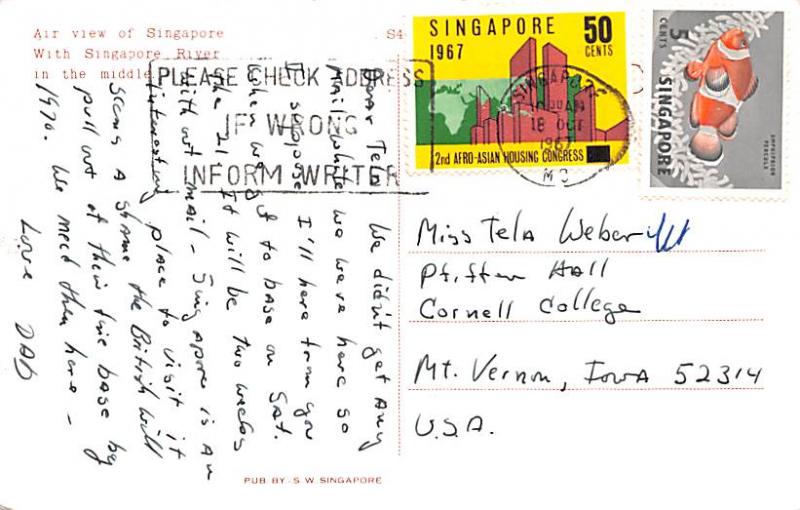 Air view of Singapore
With Singapore River
in the middle
S4
PLEASE CHECK ADDRESS
IF WRONG
INFORM WRITER
SINGAPORE
1967
50
CENTS
2nd AFRO-ASIAN HOUSING CONGRESS
SINGAPORE
30AM
18 OCT
1967
5
CENTS
SINGAPORE
AMPHIPRION
PERCULA
Dear Tela We didn't get any
mail while we were here so
I suppose I'll here from you
when we get to base on Sat.
the 21. It will be two weeks
with out mail - Singapore is an
interesting place to visit it
seems a shame the British will
pull out of their fine base by
1970. We need them here -
Love DAD
Miss Tela Weber
Pfiffer Hall
Cornell College
Mt. Vernon, Iowa 52314
U.S.A.
PUB. BY - S. W. SINGAPORE